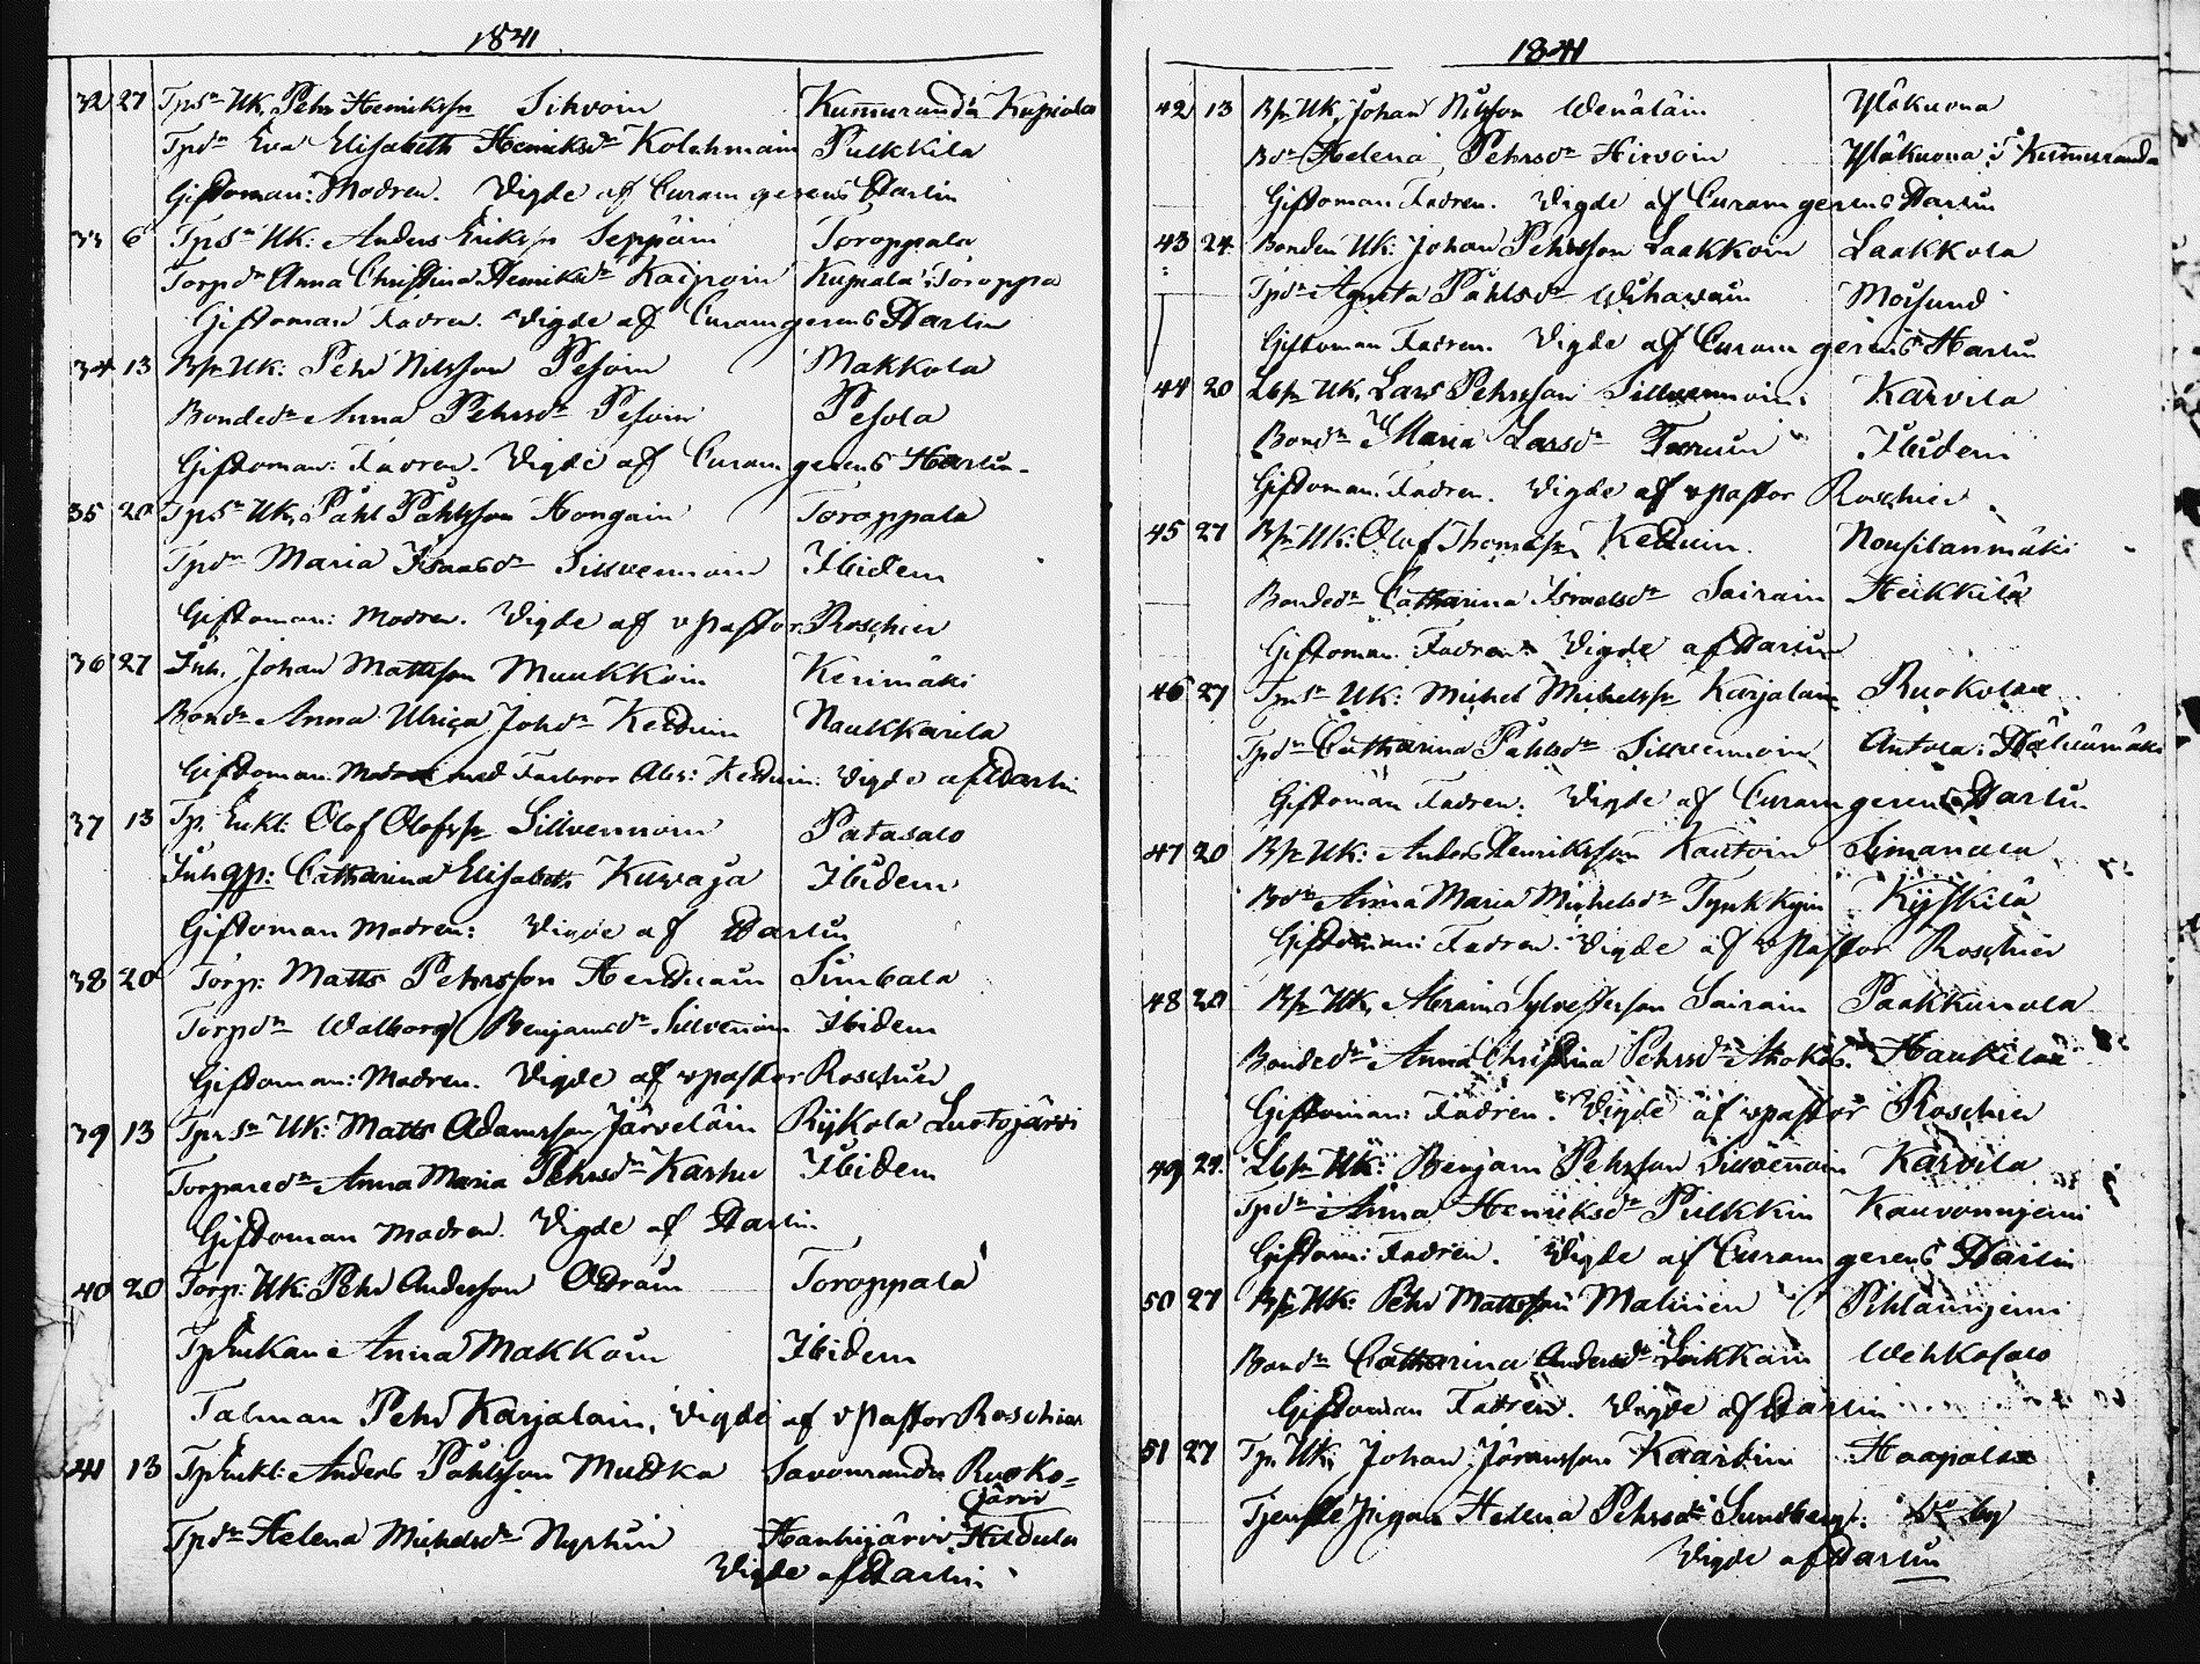 1841
32 27 Tpsn UK. Pehr Henriksn Sihvoin Kummuranda Kupiala
Tpdn Eva Elisabeth Henriksdn Kolehmain Pulkkila
Giftoman: Modren. Vigde af Curam gerens Harlin
33 6 Tpsn UK: Anders Eriksn Seppäin Toroppala
Torpdn Anna Christina Henriksdn Kaipoin Kupiala Toroppa
Giftoman Fadren. Vigde af Curam gerens Harlin
34 13 Bsn UK: Pehr Nilsson Pesoin Makkola
Bondedn Anna Pehrsdn Pesoin Pesola
Giftoman: Fadren. Vigde af Curam gerens Harlin
35 20 Tpsn UK. Påhl Påhlsson Hongain Toroppala
Tpdn Maria Isaacsdn Sillvennoin Ibidem
Giftoman: Modren. Vigde af v Pastor Roschier
36 27 Inh. Johan Mattsson Muukkoin Kerimäki
Bondn Anna Ulrica Johdn Kettuin Naukkarila
Giftoman: Modren med Farbror Alex: Kettuin. Vigde af Harlin
37 13 Tp. Enkl: Olof Olofssn Sillvennoin Patasalo
Inhqp: Catharina Elisabeth Kuwaja Ibidem
Giftoman Modren: Vigde af Harlin
38 20 Torp: Matts Pehrsson Simbala
Torpdn Walborg Benjamsdn Sillvenoin Ibidem
Giftoman: Modren. Vigde af v pastor Roschier
39 13 Tprsn UK: Matts Adamsson Järveläin Rykola Luotojärvi
Torparedn Anna Maria Pehrsdn Karhu Ibidem
Giftoman Modren. Vigde af Harlin
40 20 Torp: UK: Pehr Andersson Toroppala
Tpenkan Anna Makkoin Ibidem
Talman Pehr Karjalain, Vigde af v Pastor Roschier
41 13 TpEnkl: Anders Påhlsson Mutka Savonranda Ruoko=
järvi
Tpdn Helena Michelsdn Hanhijärvi
Vigde af Harlin
1841
42 13 Bsn UK, Johan Nilsson Wenäläin Yläkuona
Bdn Helena Pehrsdn Hirvoin Yläkuona Kummuranda
Giftoman Fadren. Vigde af Curam gerens Harlin
43 24 Bonden UK: Johan Pehrsson Laakkoin Laakkola
Tpdn Agneta Påhlsdn Wihavain Moisund
Giftoman Fadren. Vigde af Curam gerens Harlin
44 20 Lbsn UK, Lars Pehrsson Sillvennoin Karvila
Bondn Maria Larsdn Ibidem
Giftoman. Fadren. Vigde af v pastor Roschier
45 27 Bsn UK: Olof Thomasn Kettuin. Nousilanmäki
Bondedn Catharina Israelsdn Sairain Heikkilä
Giftoman. Fadren. Vigde af Harlin
46 27 Tpsn UK: Michel Michelssn Karjalain
Tpdn Catharina Påhlsdn Sillvennoin Antola: Hälvämäki
Giftoman Fadren. Vigde af Curam gerens Harlin
47 20 Bsn UK: Anders Henriksson Kautoin Simanala
Bdn Anna Maria Michelsdn Tynkkyin
Giftoman: Fadren. Vigde af v Pastor Roschier
48 20 Bsn UK, Abram Sylvesterson Sairain Paakkunola
Bondedn Anna Christina Pehrsdn Haukila
Giftoman: Fadren. Vigde af v pastor Roschier
49 24. Lbsn UK: Benjam Pehrson Sillvenoin Karvila
Tpdn Anna Henriksdn Pulkkin Kauvonnjemi
Giftom: Fadren. Vigde af Curam gerens Harlin
50 27 Bsn UK: Pehr Mattsson Malinen Pihlainnjemi
Bondn Catharina Andersdn Wehkasalo
Giftoman Fadren. Vigde af Harlin
51 27 Tp. UK, Johan Jöransson Kaartin Haapala
Tjenste pigan Helena Pehrsdn Sundberg: by
Vigde af Harlin